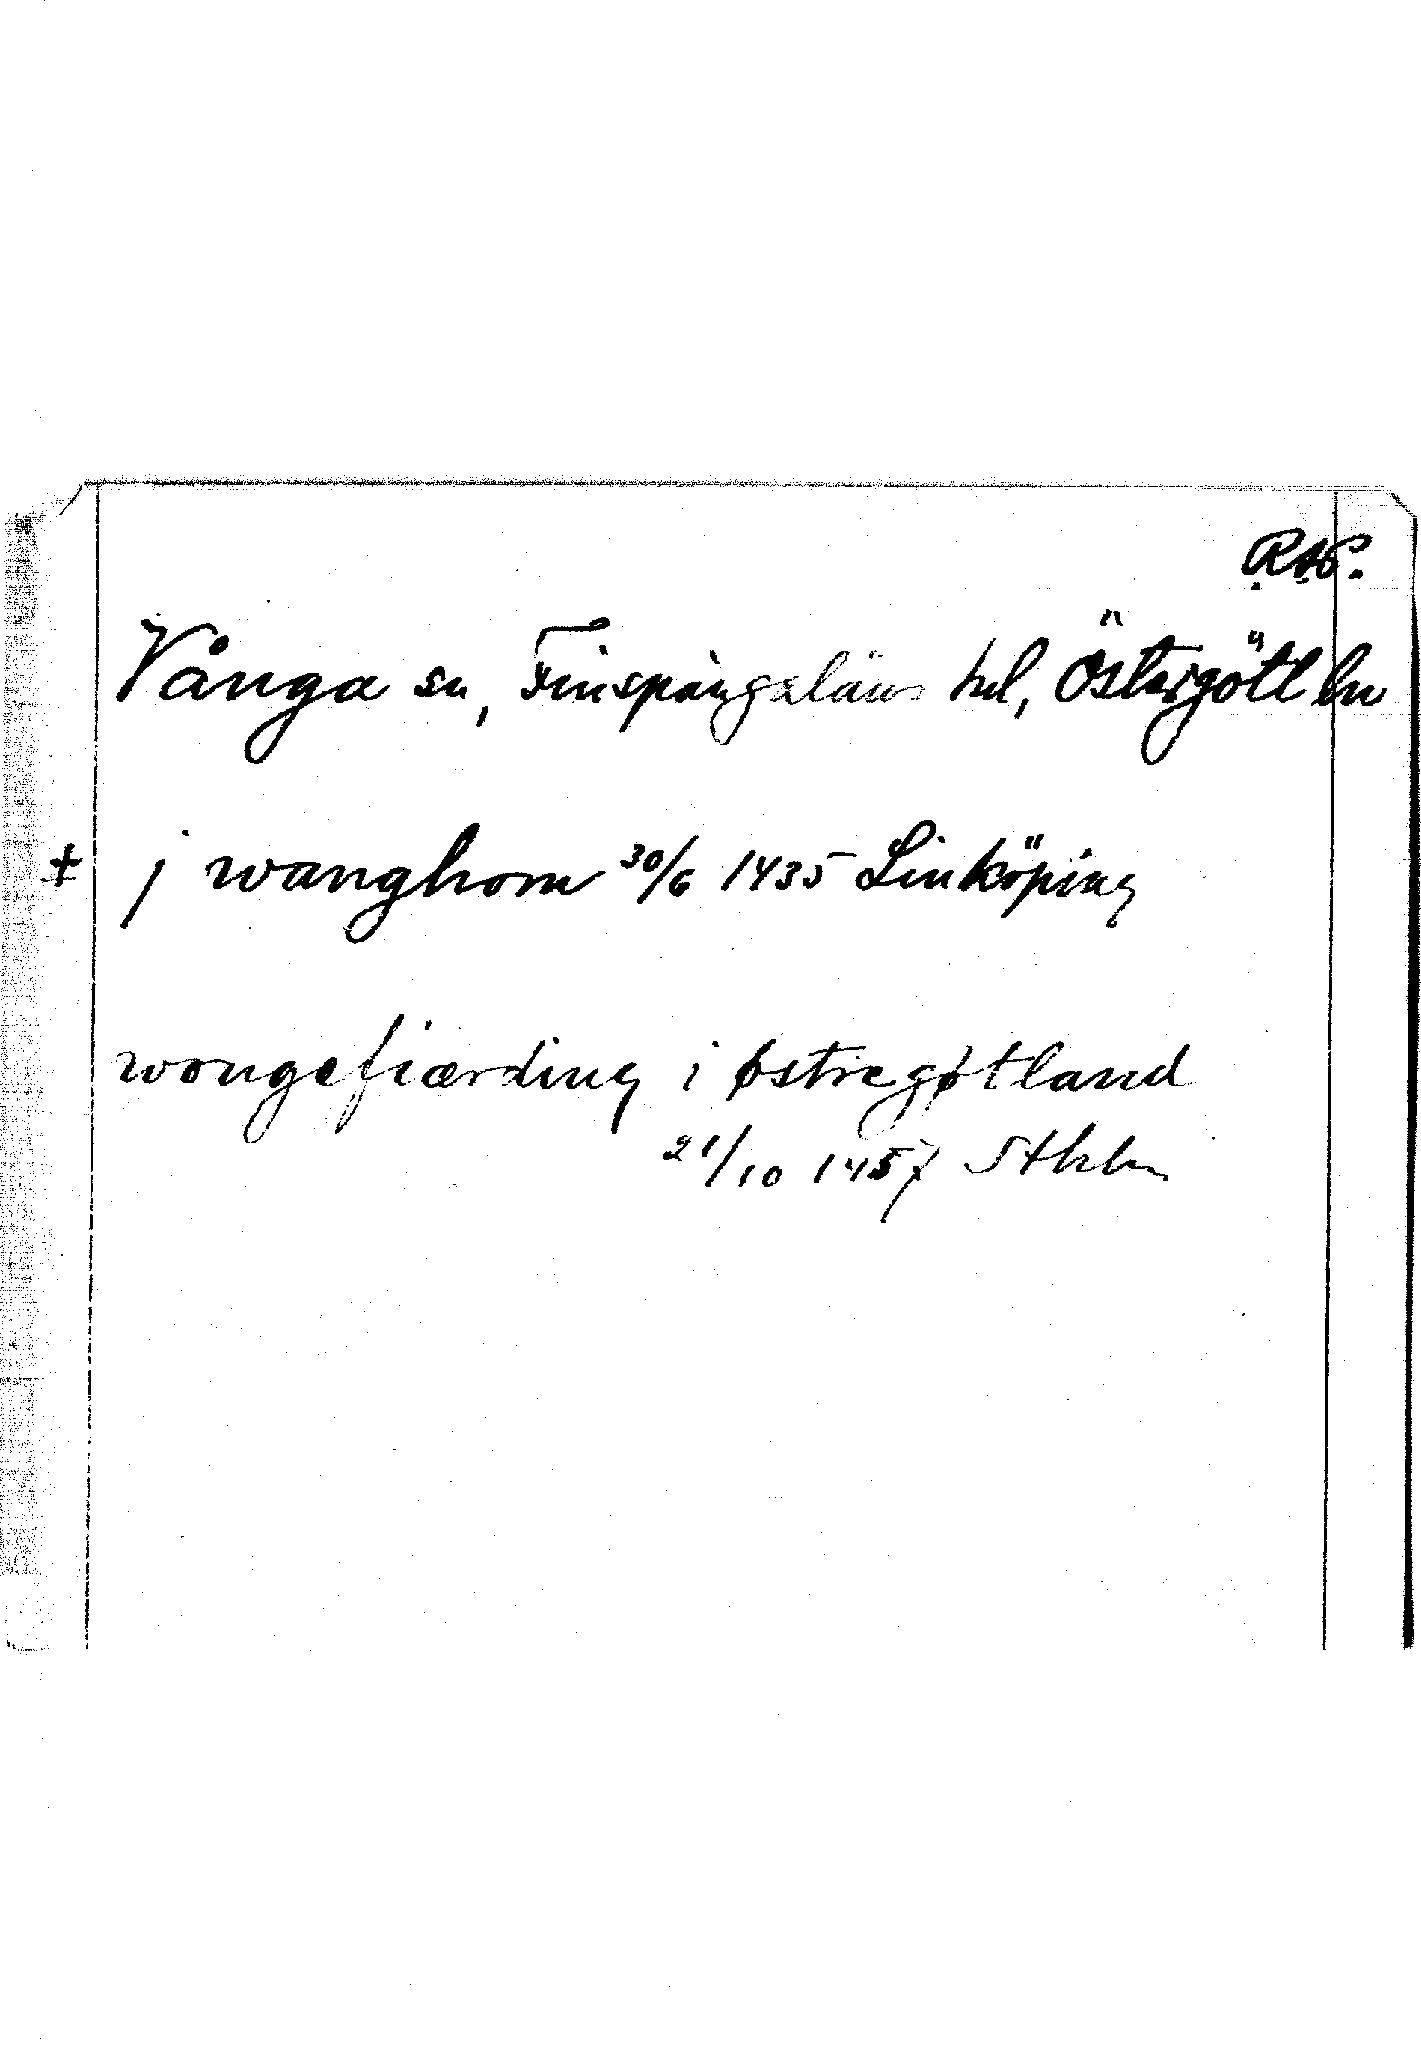 R.A.P.
Vånga sn, Finspångaläns hd, Östergötl ln
‡ j wanghom 30/6 1435 Linköping
wongefiærding i østregøtland
21/10 1457 Sthlm